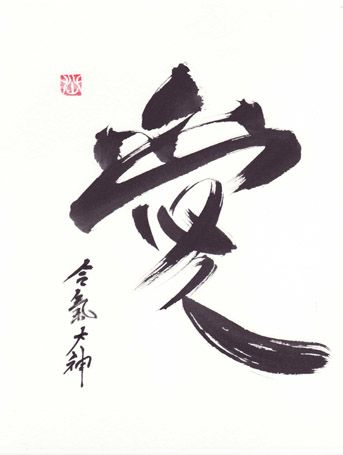 愛
合氣大神